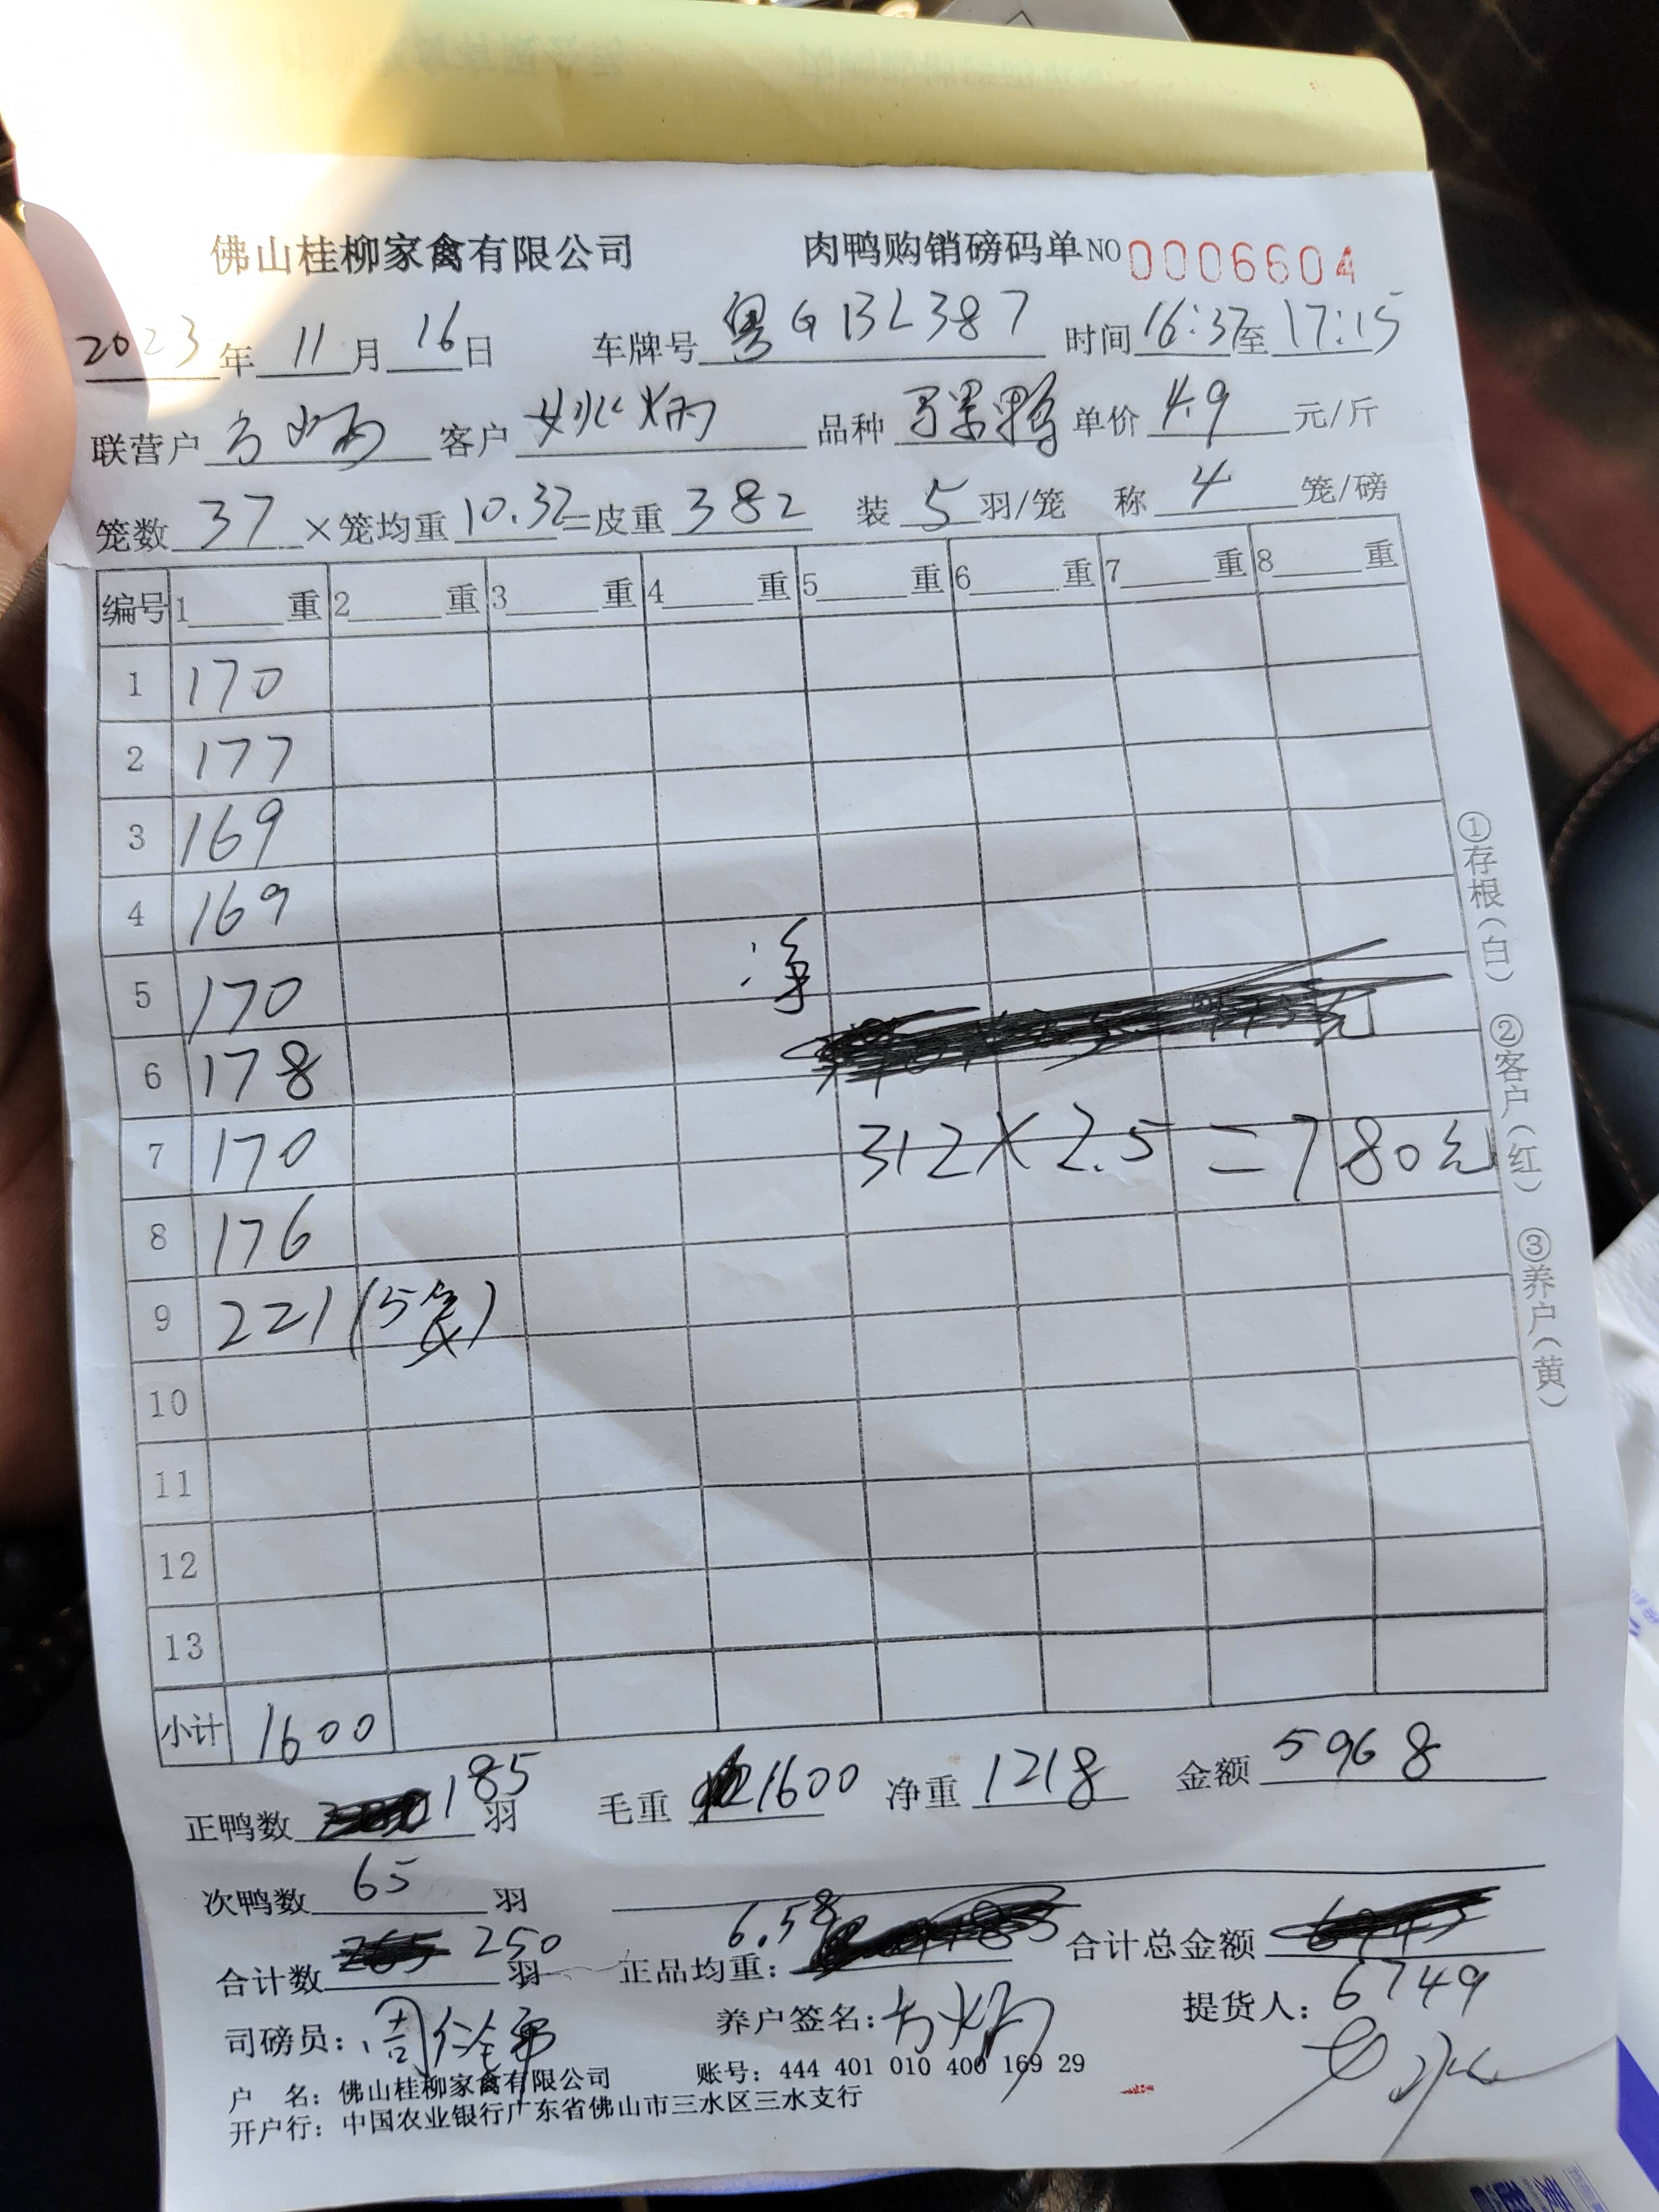 佛山桂柳家禽有限公司 肉鸭购销磅码单 NO 0006604
2023年 11月 16日 车牌号 粤GBL387 时间 16:37至17:15
联营户 方炳 客户 姚炳 品种 单价 4.9 元/斤
笼数 37 ×笼均重 10.32 =皮重 382 装 5 羽/笼 称 4 笼/磅
编号 1 重 2 重 3 重 4 重 5 重 6 重 7 重 8 重
1 170
2 177
3 169
4 169
净
5 170
6 178
7 170 312×2.5=780元
8 176
9 221(5笼)
10
11
12
13
小计 1600
正鸭数 185 羽 毛重 1600 净重 1218 金额 5968
次鸭数 65 羽
合计数 250 羽 正品均重: 6.58 合计总金额 6749
司磅员: 周 养户签名: 方炳 提货人:
户 名: 佛山桂柳家禽有限公司 账号: 444 401 010 400 169 29
开户行: 中国农业银行广东省佛山市三水区三水支行
①存根(白) ②客户(红) ③养户(黄)